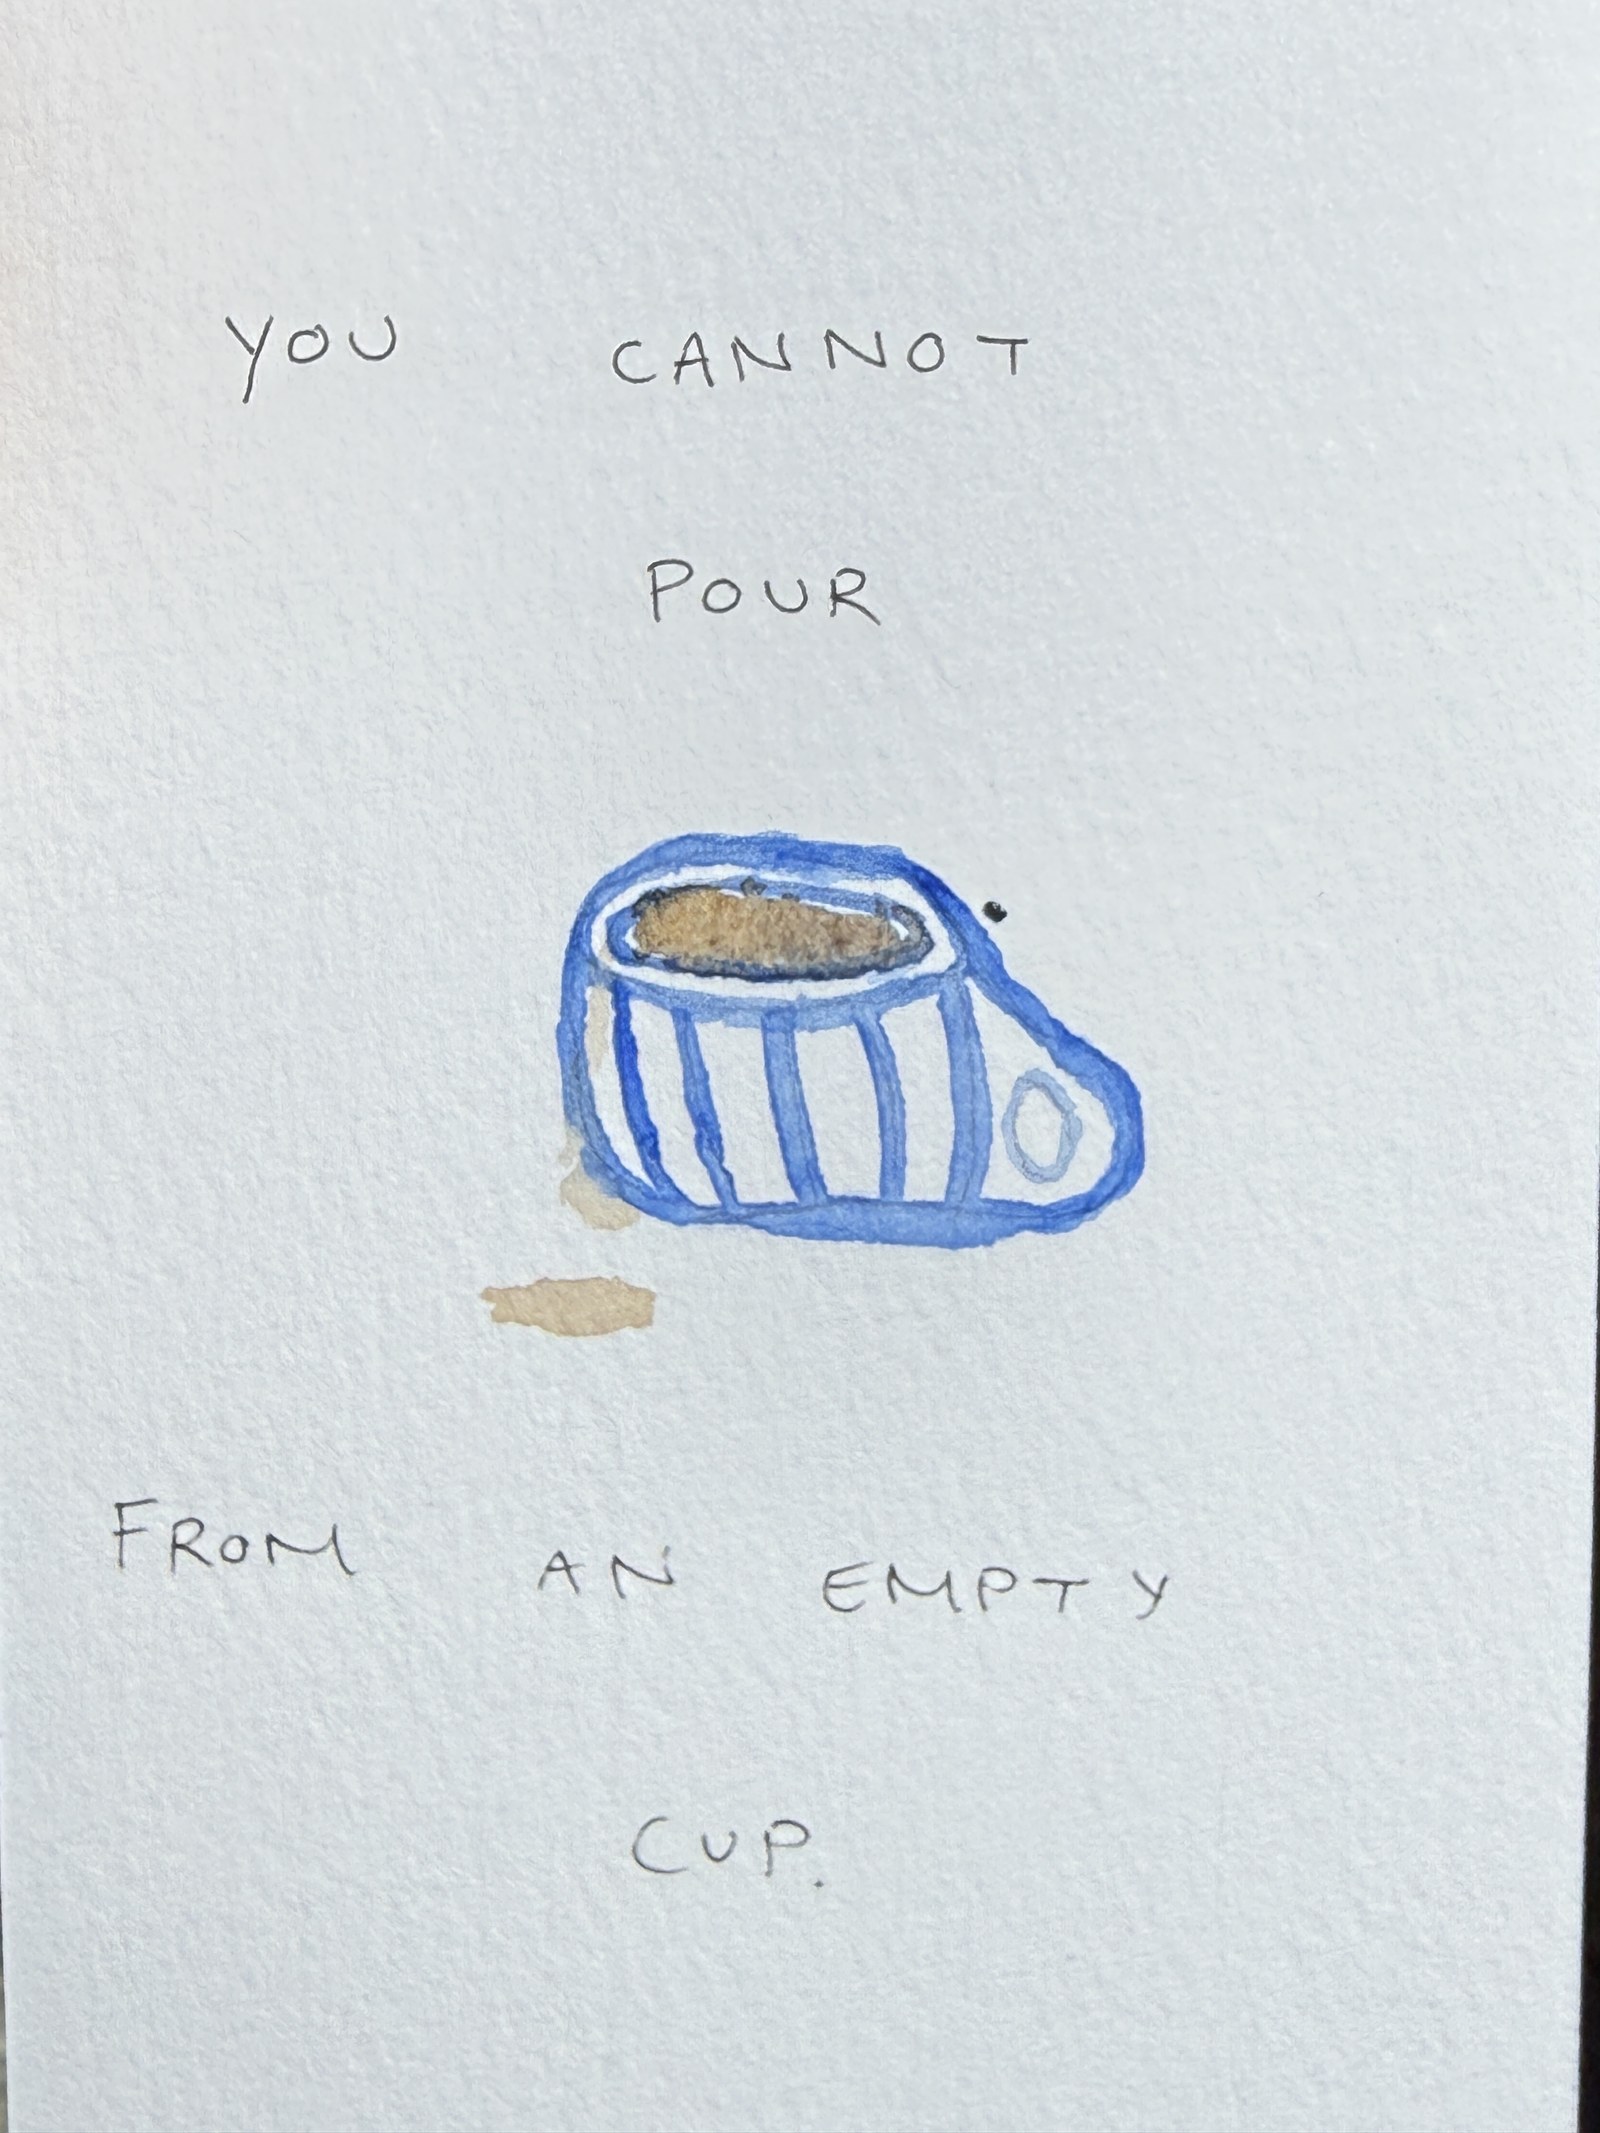 YOU CANNOT
POUR
FROM AN EMPTY
CUP.